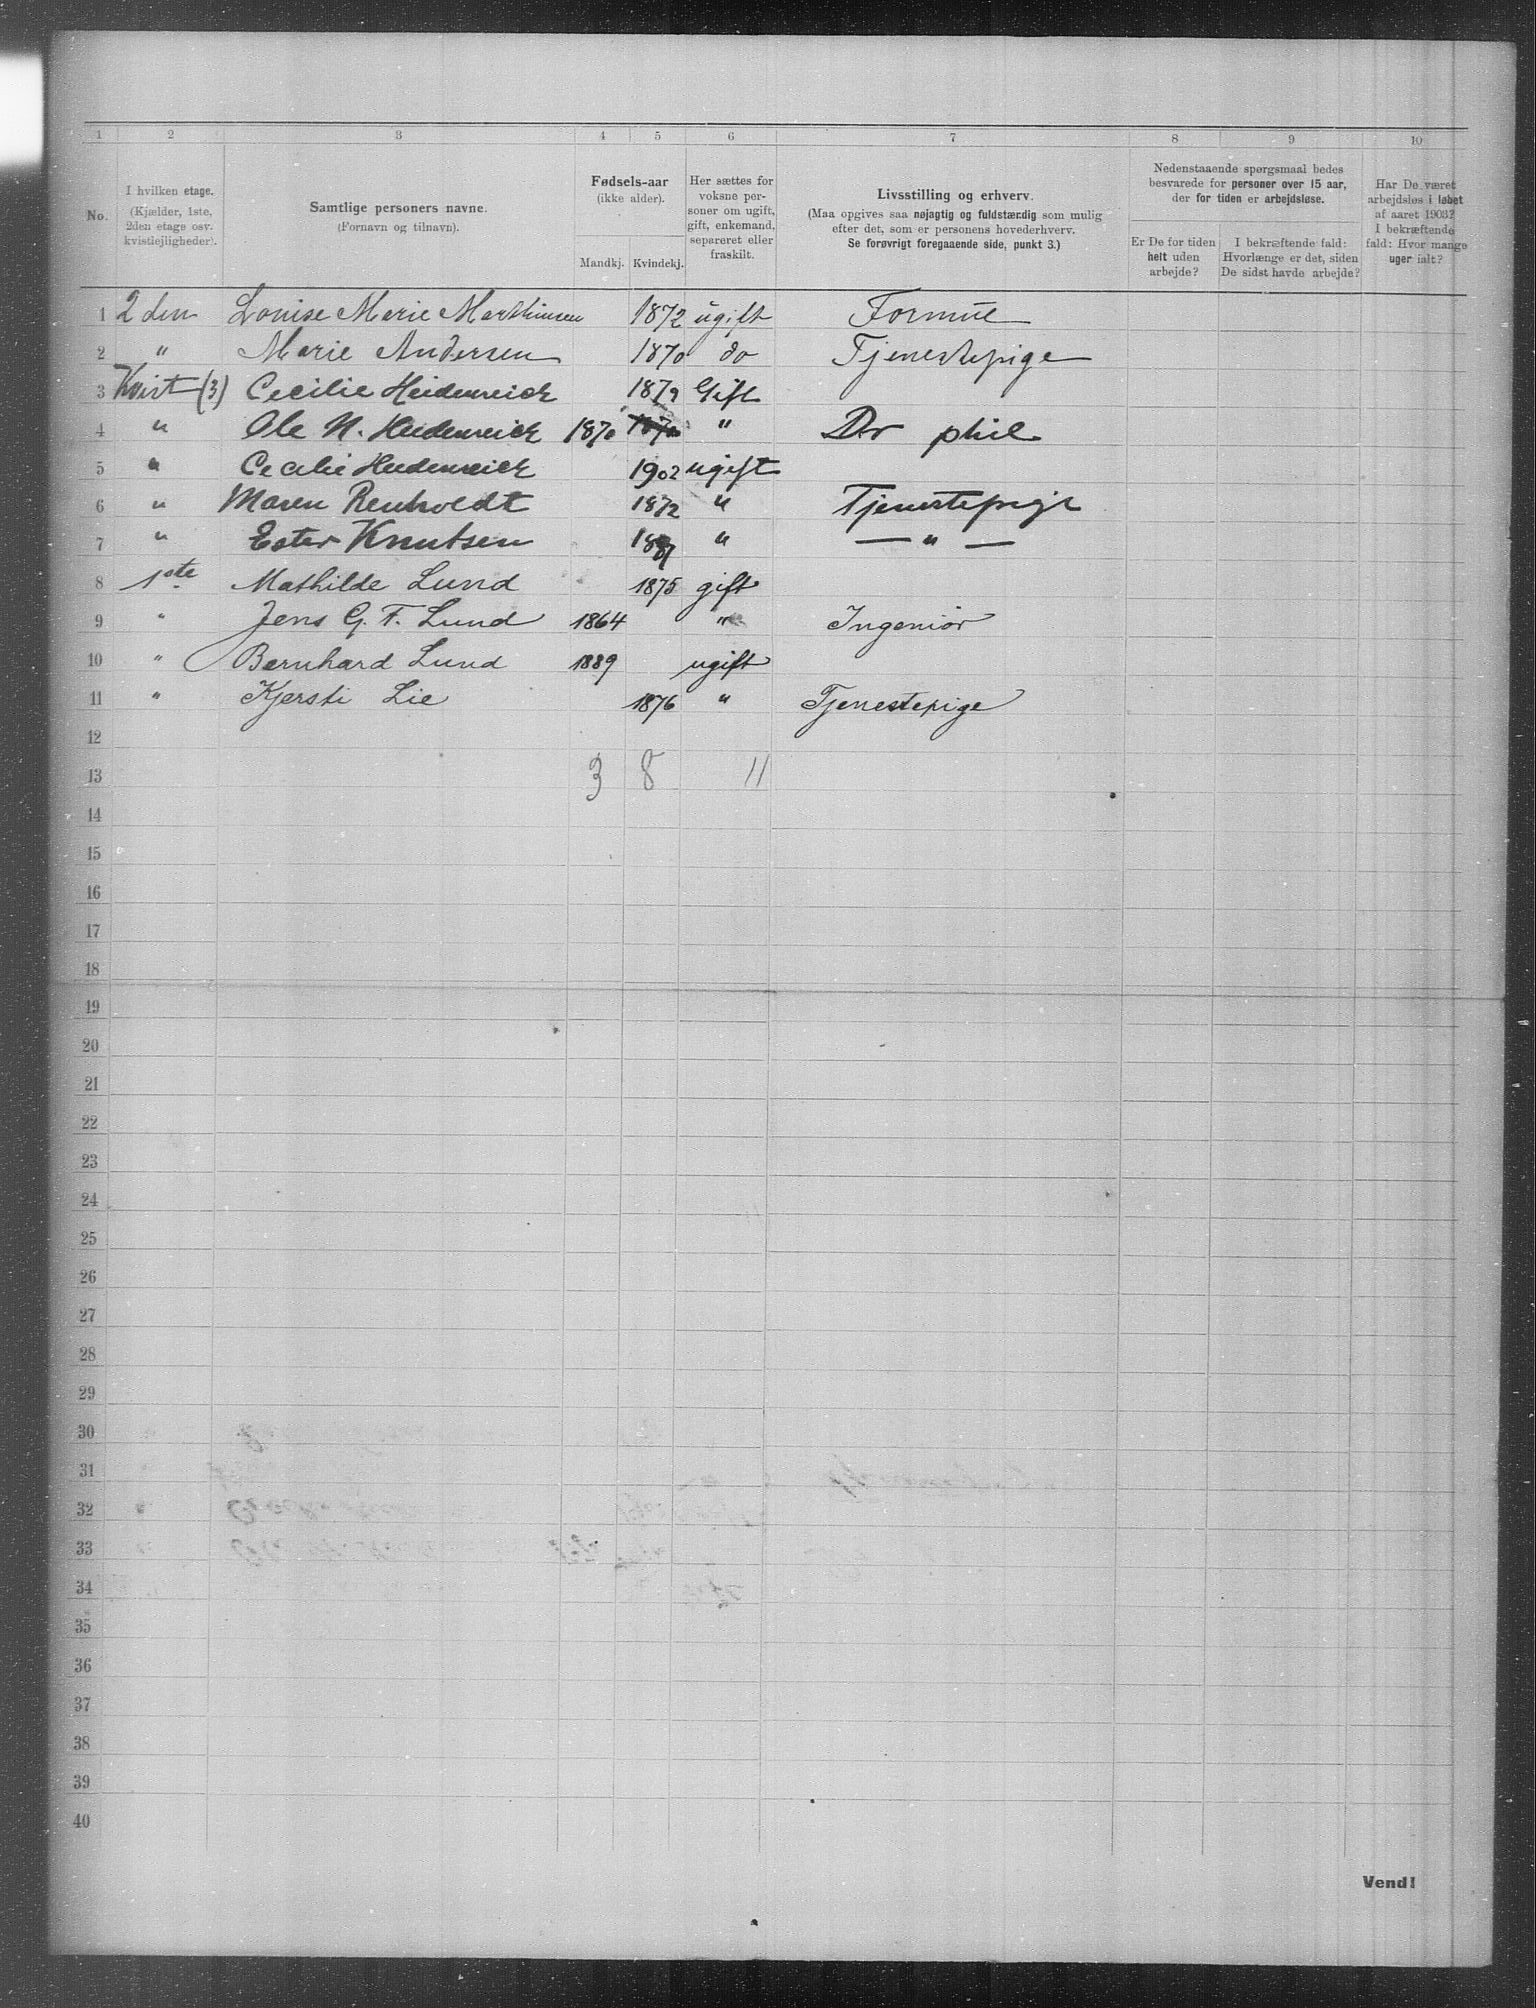 1 2 3 4 5 6 7 8 9 10
No.
I hvilken etage.
(Kjælder, 1ste,
2den etage osv.
kvistlejligheder).
Samtlige personers navne.
(Fornavn og tilnavn).
Fødsels-aar
(ikke alder).
Mandkj. Kvindekj.
Her sættes for
voksne per-
soner om ugift,
gift, enkemand,
separeret eller
fraskilt.
Livsstilling og erhverv.
(Maa opgives saa nøjagtig og fuldstændig som mulig
efter det, som er personens hovederhverv.
Se forøvrigt foregaaende side, punkt 3.)
Nedenstaaende spørgsmaal bedes
besvarede for personer over 15 aar,
der for tiden er arbejdsløse.
Er De for tiden
helt uden
arbejde?
I bekræftende fald:
Hvorlænge er det, siden
De sidst havde arbejde?
Har De været
arbejdsløs i løbet
af aaret 1903?
I bekræftende
fald: Hvor mange
uger ialt?
1 2den Louise Marie Marthinsen 1872 ugift Formue
2 " Marie Andersen 1870 do Tjenestepige
3 Kvist (3) Cecilie Heidenreich 1879 Gift
4 " Ole N. Heidenreich 1870 1870 " Dr phil
5 " Cecilie Heidenreich 1902 ugift
6 " Maren 1872 " Tjenestepige
7 " Ester Knutsen " — " —
8 1ste Mathilde Lund 1875 gift
9 " Jens G. F. Lund 1864 " Ingeniør
10 " Bernhard Lund 1889 ugift
11 " Kjersti Lie 1876 " Tjenestepige
12
13 3 8 11
14
15
16
17
18
19
20
21
22
23
24
25
26
27
28
29
30
31
32
33
34
35
36
37
38
39
40
Vend!